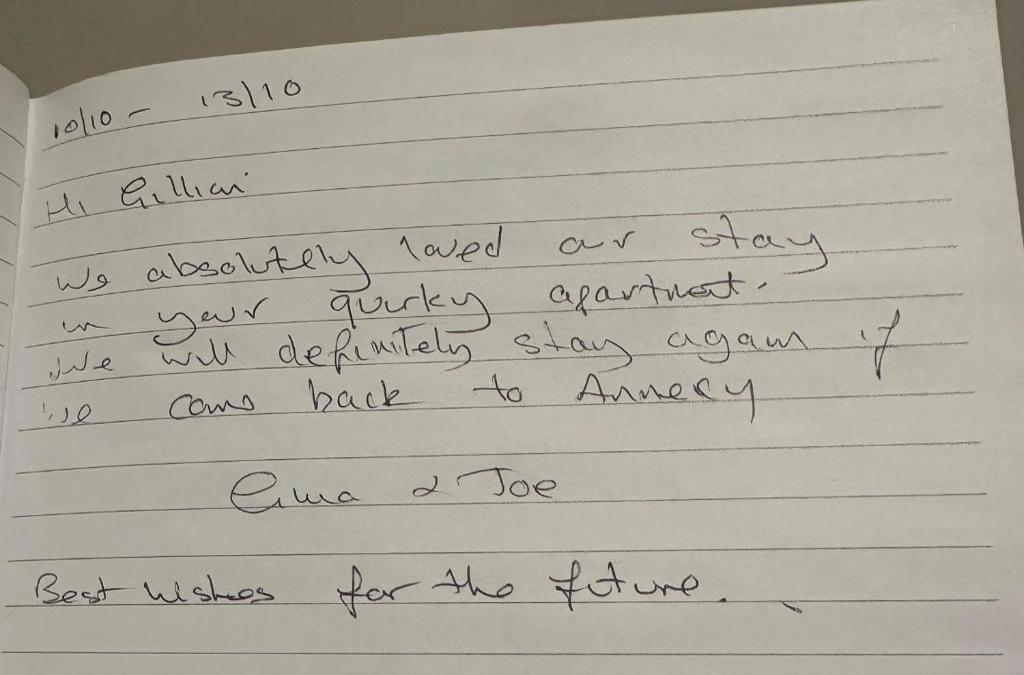 10/10 - 13/10
Hi Gillian
We absolutely loved our stay
in your quirky apartment.
We will definitely stay again if
we come back to Annecy
& Joe
Best wishes for the future.